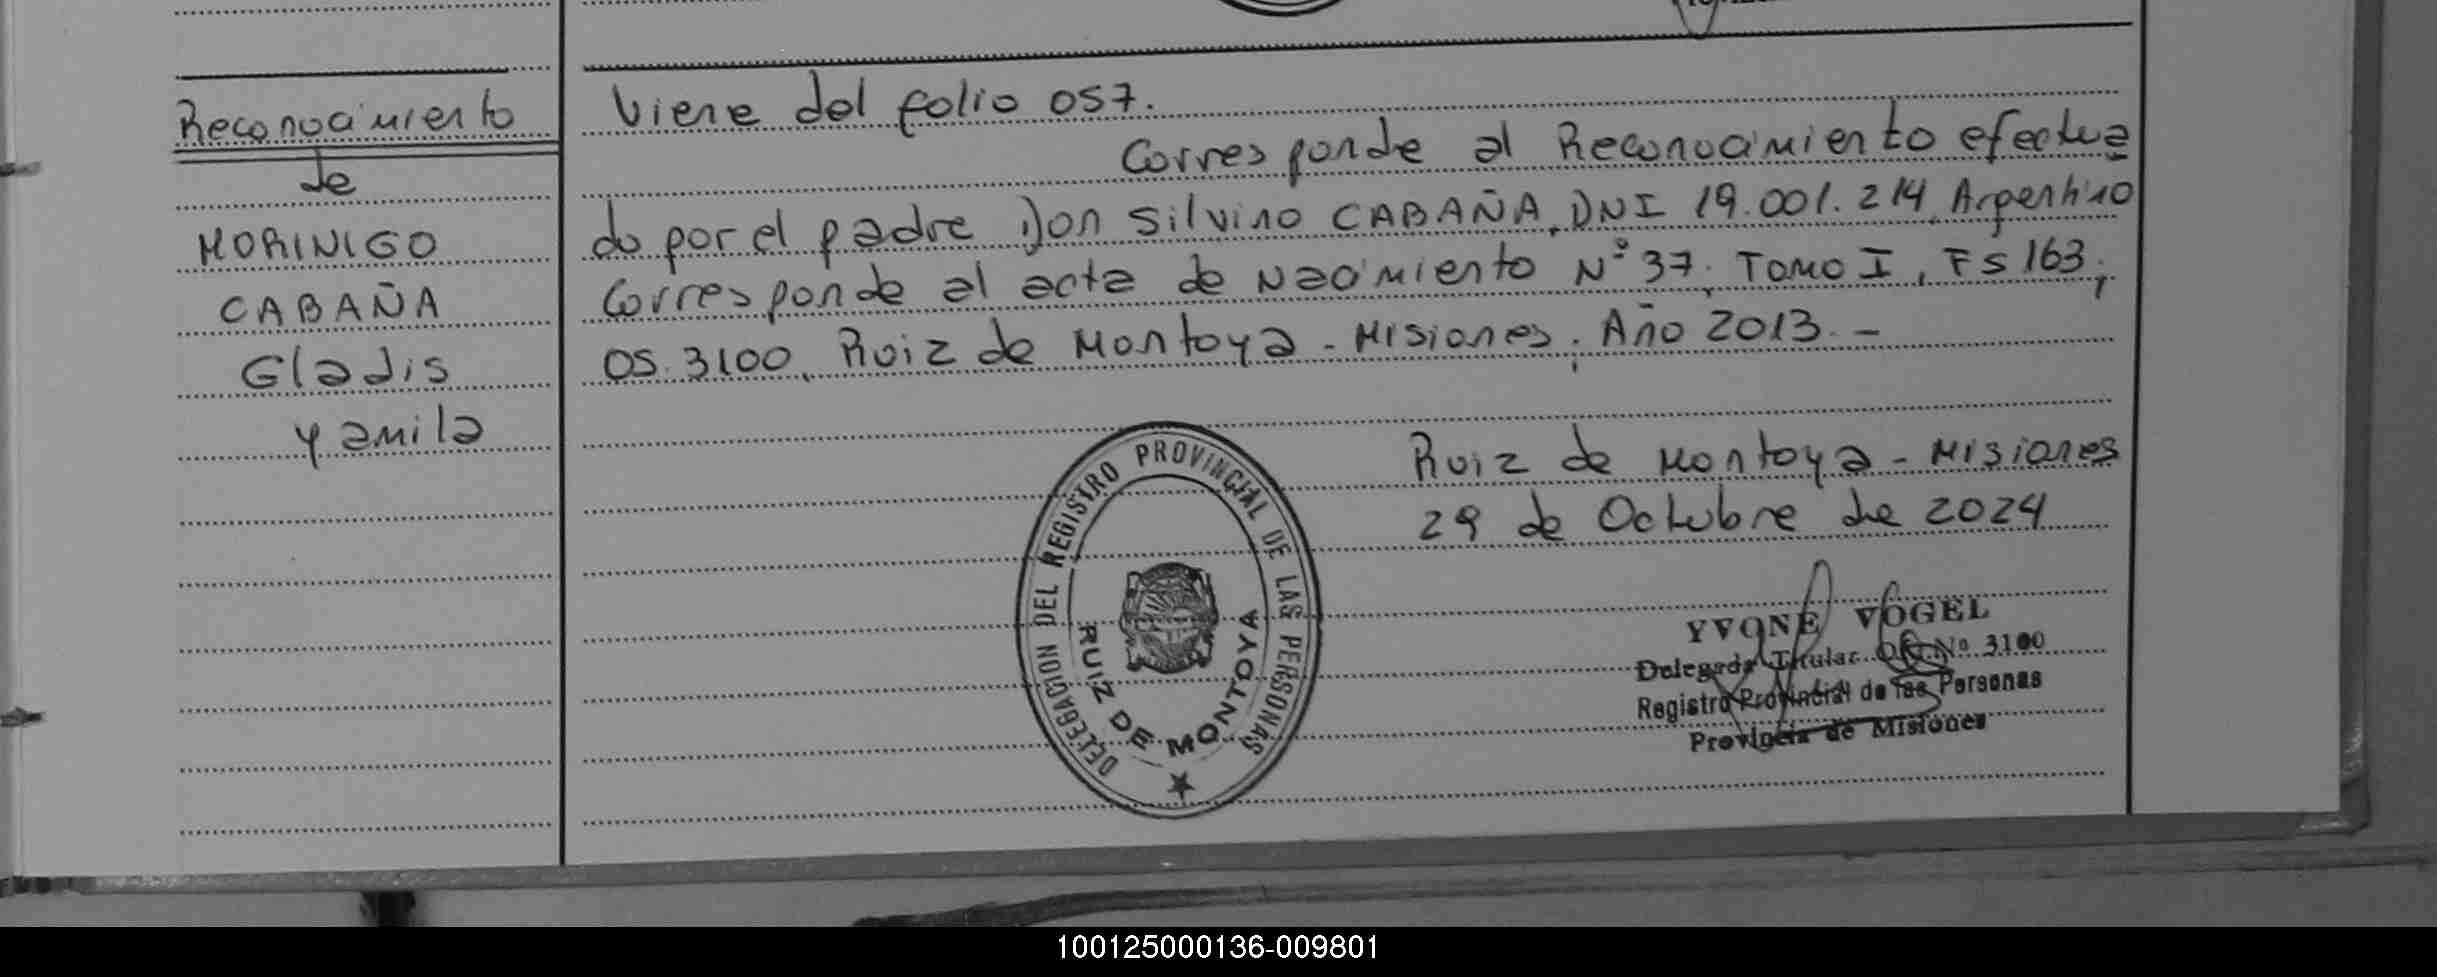 Reconocimiento
de
MORINIGO
CABAÑA
Gladis
Yamila
Viene del folio 057.
Corresponde al Reconocimiento efectua
do por el padre Don Silvino CABAÑA, DNI 19.001.214, Argentino
Corresponde al acta de Nacimiento N° 37, Tomo I, FS 163,
OS. 3100, Ruiz de Montoya - Misiones, Año 2013.-
Ruiz de Montoya - Misiones
29 de Octubre de 2024
DELEGACION DEL REGISTRO PROVINCIAL DE LAS PERSONAS
RUIZ DE MONTOYA
YVONE VOGEL
Delegada Titular Of. Nº 3100
Registro Provincial de las Personas
Provincia de Misiones
100125000136-009801